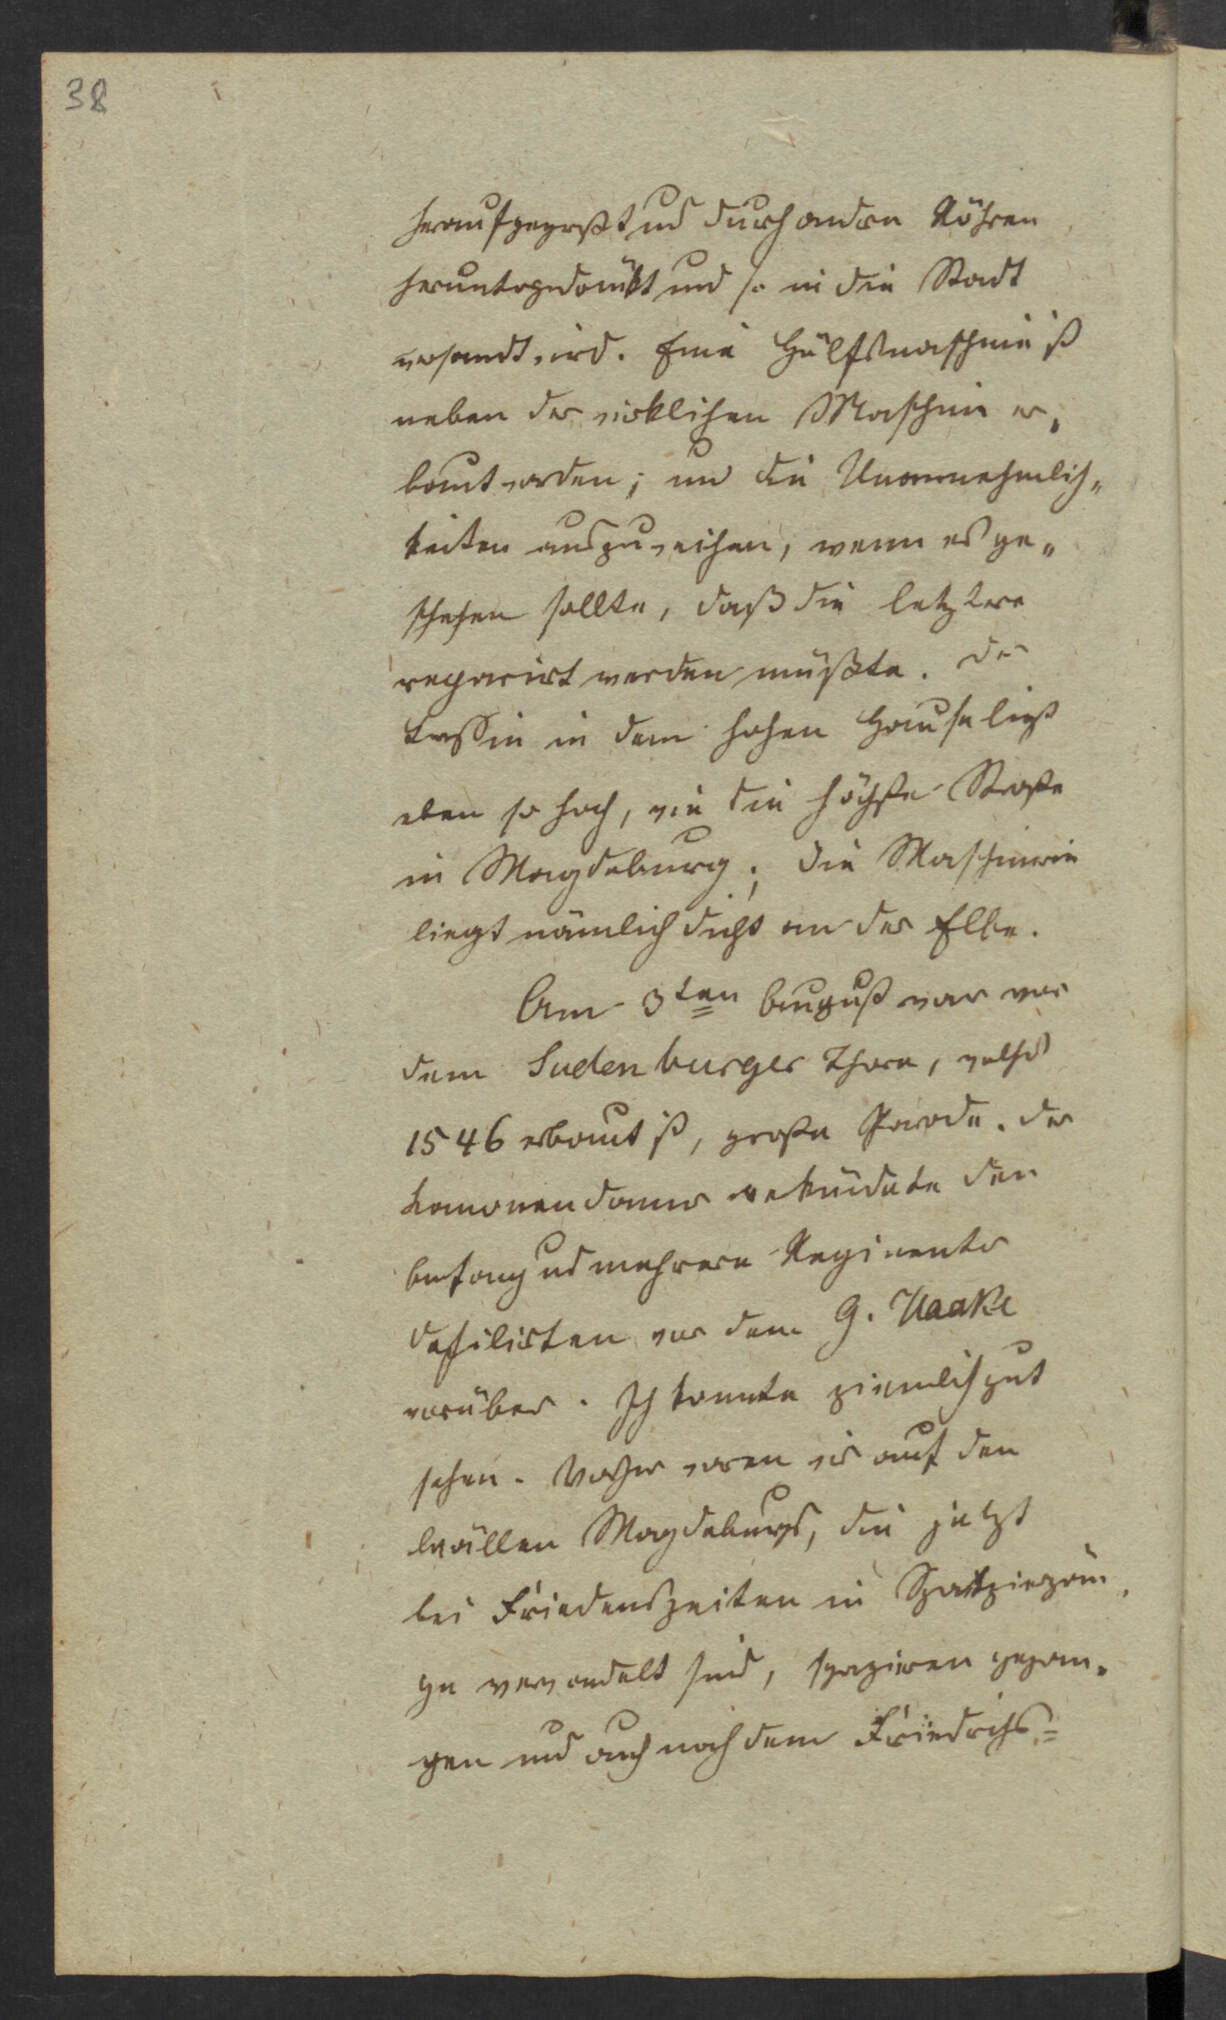 38
heraufgepreßt und durch andre Röhren
heruntergedrückt und so in die Stadt
versandt wird. Eine Hülfsmaschine ist
neben der wirklichen Maschine er„
baut worden; um die Unannehmlich„
keiten auszuweichen, wenn es ge„
schehen sollte, daß die letztere
reparirt werden müßte. Das
Bassin in dem hohen Hause liegt
eben so hoch, wie die höchste Straße
in Magdeburg; die Maschinerie
liegt nämlich dicht an der Elbe.
Am 3ten August war vor
dem Sudenburger Thore, welches
1546 erbaut ist, große Parade. Der
Kanonendonner verkündete den
Anfang und mehrere Regimenter
defilirten vor dem G. Haake
vorüber. Ich konnte ziemlich gut
sehen. Vorher waren wir auf den
Wällen Magdeburgs, die jetzt
bei Friedenszeiten in Spatziergän„
ge verwandelt sind, spaziren gegan„
gen und auch nach dem Friedrichs=